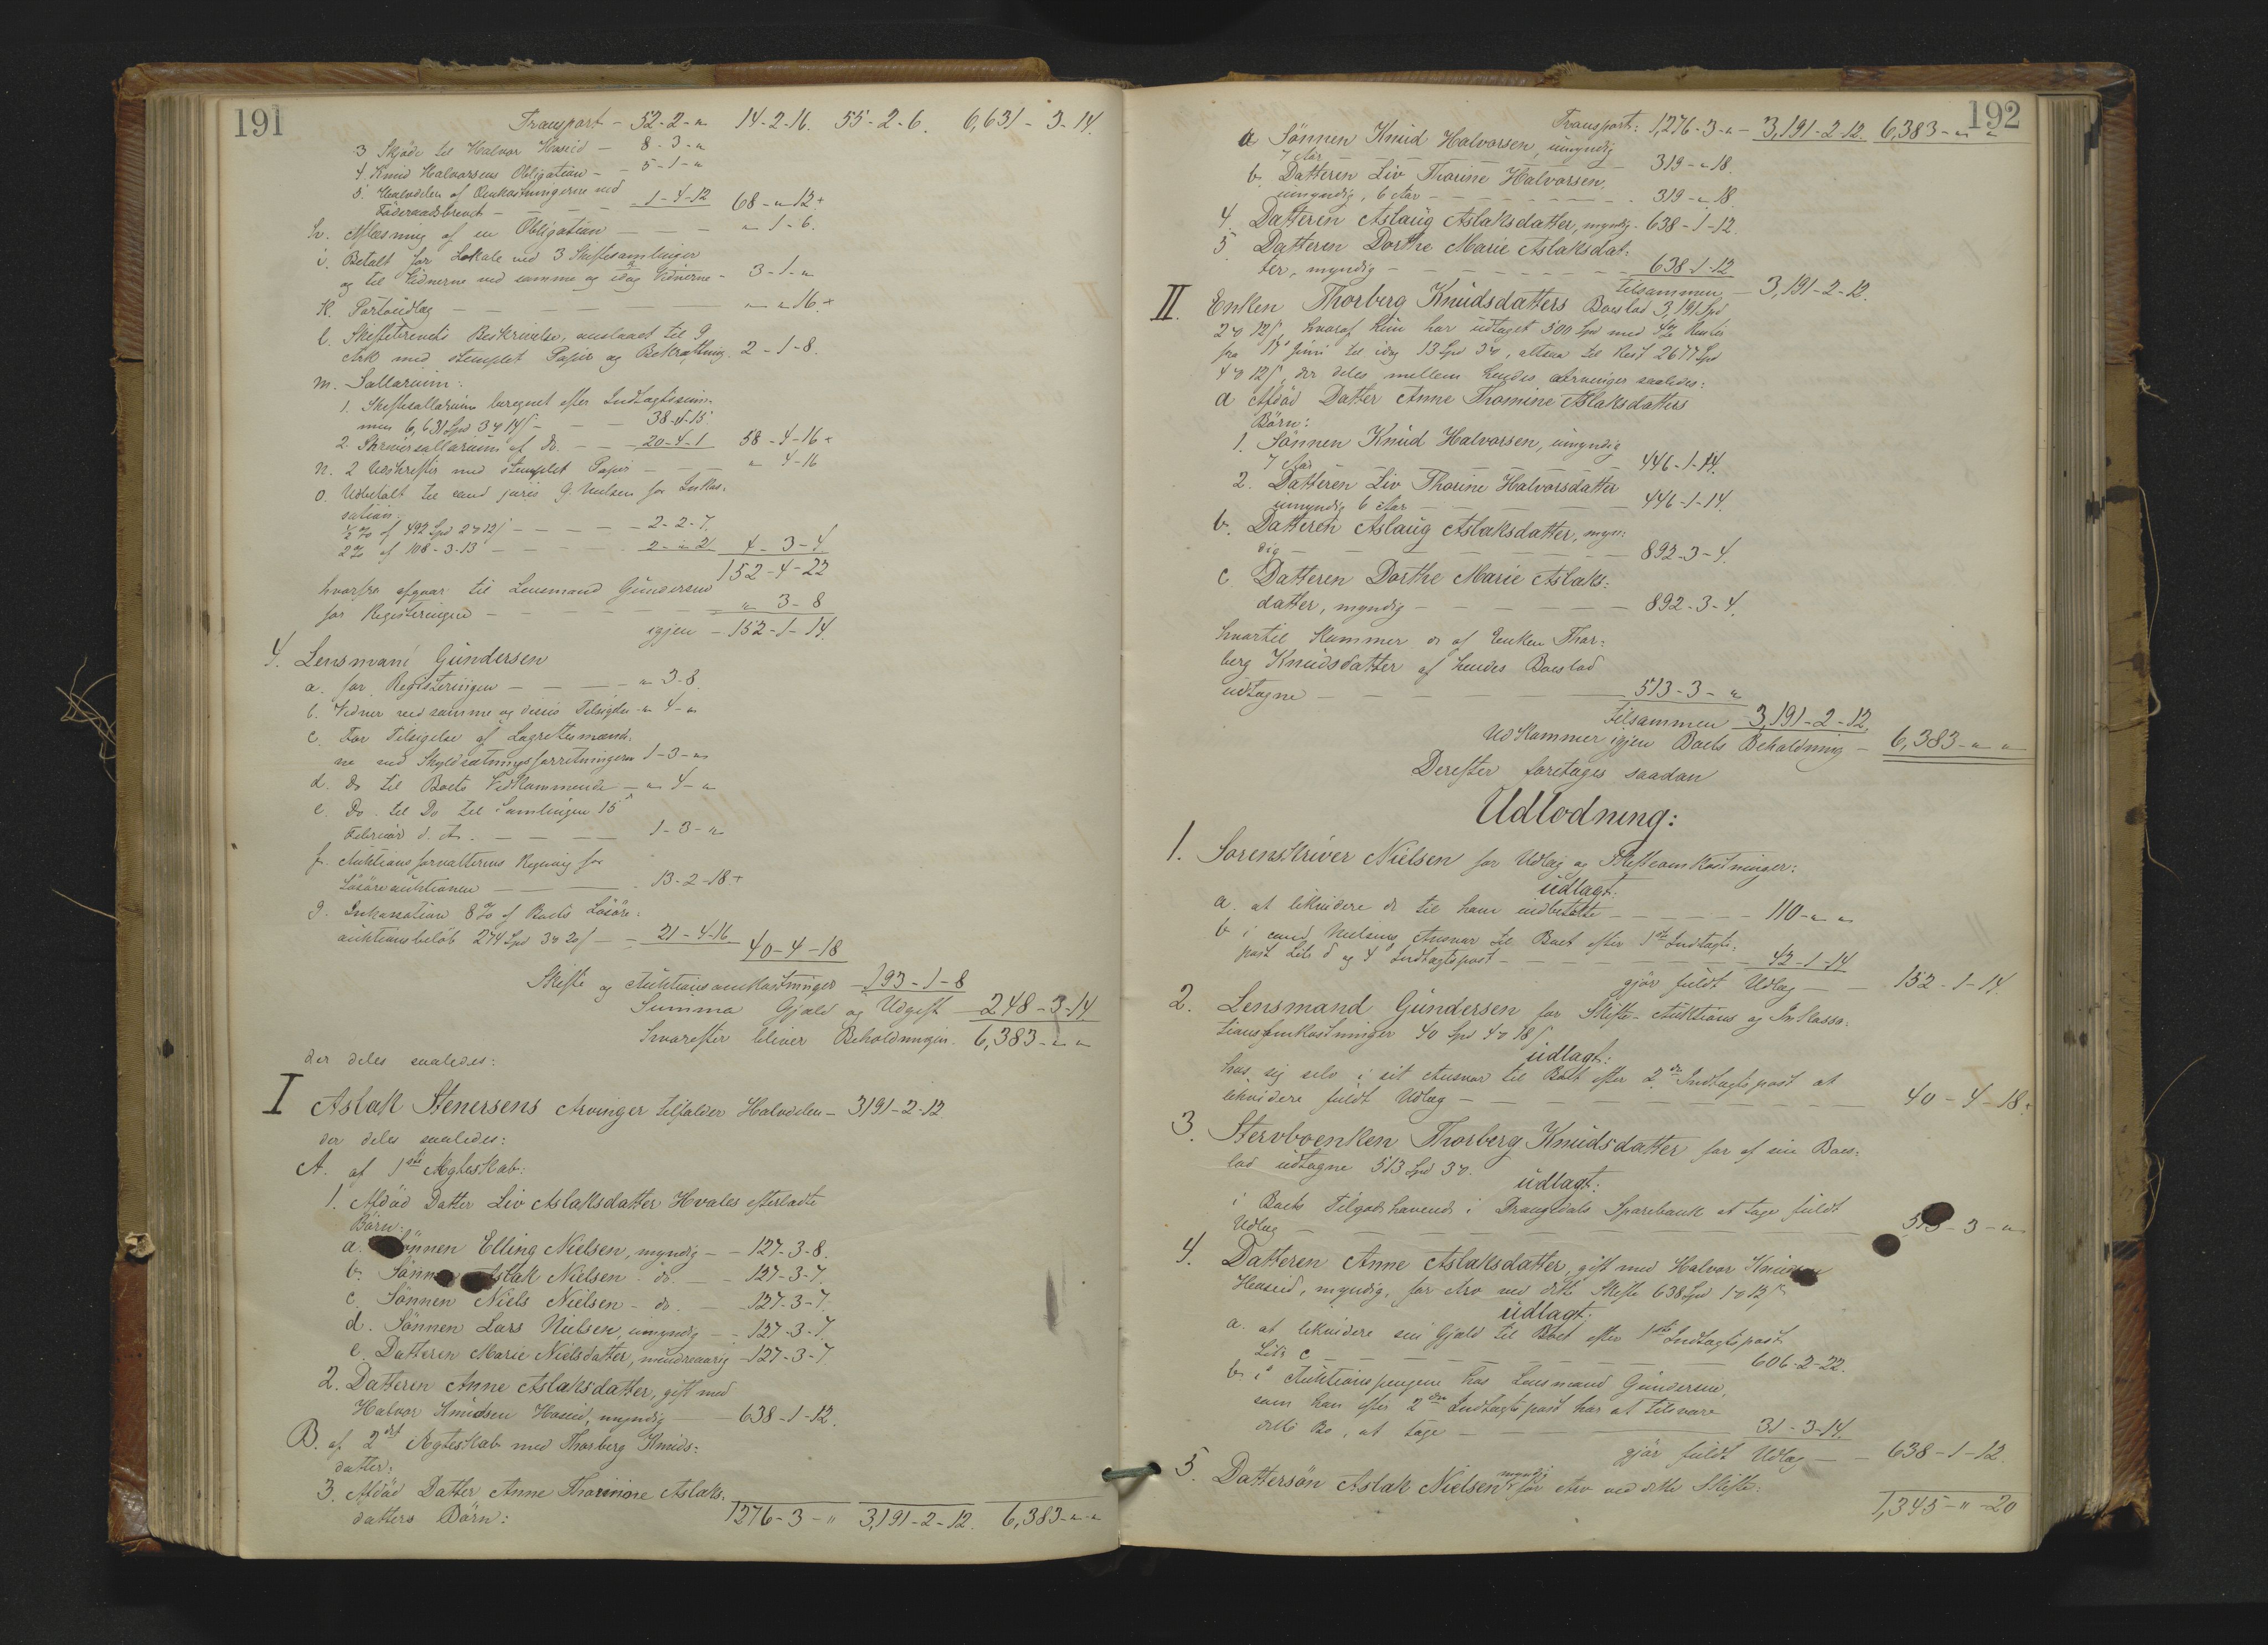 191
Transport - 52-2-" 14-2-16. 55-2-6. 6,631-3-14.
3 Skjöde til Halvor Haseid - 8-3-"
4. Knud Halvorsens Obligation - 5-1-"
5. Halvdelen af Omkostningerne ved
Föderaadsbrevet - 1-4-12 68-"-12+
h. Aflæsning af en Obligation - "-1-6.
i. Betalt for Lokale ved 3 Skiftesamlinger
og til Vidnerne ved samme og idag Vidnerne - 3-1-"
k. Portoudlæg - "-"-16.+
l. Skiftebrevets Beskrivelse, anslaaet til 9
Ark med stemplet Papir og Bekræftning. 2-1-8.
m. Sallarium:
1. Skiftesallarium beregnet efter Indtægtssum-
men 6,631 Spd 3 14 - 38-"-15.
2. Skriversallarium af do - 20-4-1 58-4-16+
n. 2 Udskrifter med stemplet Papir - "-4-16
o. Udbetalt til cand juris G. Nielsen for Inkas-
sation:
½ % af 492 Spd 2 12 - 2-2-7.
2% af 108-3-13 - 2-"-21 4-3-4.
152-4-22
hvorfra afgaar til Lensmand Gundersen
for Registeringen - "-3-8
igjen - 152-1-14.
4. Lensmand Gundersen
a. for Registeringen - "-3-8.
b. Vidner ved samme og disses Tilsigelse - "-4-"
c. For Tilsigelse af Lagrettesmænd-
ne ved Skyldsætningsforretningen 1-3-"
d. do til Boets Vedkommende - "-4-"
e. Do. til Do til Samlingen 15
Februar d. A. - 1-3-"
f. Auktionsforvalterens Regning for
Lösöreauktionen - 13-2-18+
g. Inkassation 8% af Boets Lösöre-
auktionsbelöb 274 Spd 3 20 - 21-4-16 40-4-18
Skifte og Auktionsomkostninger - 193-1-8
Summa Gjæld og Udgift - 248-3-14.
hvorefter bliver Beholdningen. 6,383-"-"
der deles saaledes:
I Aslak Stenersens Arvinger tilfalder Halvdelen - 3191-2-12
der deles saaledes:
A. af 1ste Ægteskab:
1. Afdöd Datter Liv Aslaksdatter Hvales efterladte
Börn:
a. Sönnen Elling Nielsen, myndig - 127-3-8.
b. Sönnen Aslak Nielsen - do. - 127-3-7.
c. Sönnen Niels Nielsen - do. - 127-3-7.
d. Sönnen Lars Nielsen, umyndig - 127-3-7.
e. Datteren Marie Nielsdatter, mindreaarig - 127-3-7
2. Datteren Anne Aslaksdatter, gift med
Halvor Knudsen Haseid, myndig - 638-1-12.
B. af 2det Ægteskab med Thorberg Knuds-
datter:
3. Afdöd Datter Anne Thomine Aslaks-
datters Börn: 1276-3-" 3,191-2-12. 6,383-"-"
192
Transport: 1,276-3-" - 3,191-2-12. 6,383-"-"
a Sönnen Knud Halvorsen, umyndig
7 Aar - 319-"-18.
b. Datteren Liv Thorine Halvorsen,
umyndig, 6 Aar - 319-"-18.
4. Datteren Aslaug Aslaksdatter, myndig. 638-1-12.
5 Datteren Dorthe Marie Aslaksdat-
ter, myndig - 638-1-12
tilsammen - 3,191-2-12.
II. Enken Thorberg Knudsdatters Boeslod 3,191 Spd
2 12, hvoraf hun har udtaget 500 Spd med Renter
fra 17 Juni til idag 13 Spd 3, altsaa til Rest 2677 Spd
4 12, der deles mellem hendes Arvinger saaledes:
a Afdöd Datter Anne Thomine Aslaksdatters
Börn:
1. Sönnen Knud Halvorsen, umyndig
7 Aar - 446-1-14.
2. Datteren Liv Thorine Halvorsdatter
umyndig 6 Aar - 446-1-14.
b. Datteren Aslaug Aslaksdatter, myn-
dig - 892-3-4.
c. Datteren Dorthe Marie Aslaks-
datter, myndig - 892-3-4.
hvortil kommer de af Enken Thor-
berg Knudsdatter af hendes Boeslod
udtagne - 513-3-"
tilsammen 3,191-2-12,
Udkommer igjen Boets Beholdning - 6,383-"-"
Derefter foretages saadan
Udlodning:
1. Sorenskriver Nielsen for Udlæg og Skifteomkostninger:
udlagt:
a. at likvidere de til ham indbetalte - 110-"-"
b i cand Nielsens Ansvar til Boet efter 1ste Indtægts-
post Litr d og 4 Indtægtspost - 42-1-14
gjör fuldt Udlæg - 152-1-14.
2. Lensmand Gundersen for Skifte- Auktions og Inkassa-
tionsomkostninger 40 Spd 4 18
udlagt:
hos sig selv i sit Ansvar til Boet efter 2den Indtægtspost at
likvidere fuldt Udlæg - 40-4-18.+
3. Stervboenken Thorberg Knudsdatter for af sin Boes-
lod udtagne 513 Spd 3.
udlagt:
i Boets Tilgodehavende i Drangedals Sparebank at tage fuldt
Udlæg - 513-3-"
4. Datteren Anne Aslaksdatter, gift med Halvor Knudsen
Haseid, myndig, for Arv ved dette Skifte 638 Spd 1 12
udlagt:
a. at likvidere sin Gjæld til Boet efter 1ste Indtægtspost
Litr c - 606-2-22.
b. i Auktionspengene hos Lensmand Gundersen,
som han efter 2den Indtægtspost har at tilsvare
dette Bo, at tage - 31-3-14.
gjör fuldt Udlæg - 638-1-12.
5. Dattersön Aslak Nielsen myndig for Arv ved dette Skifte:
1,345-"-20